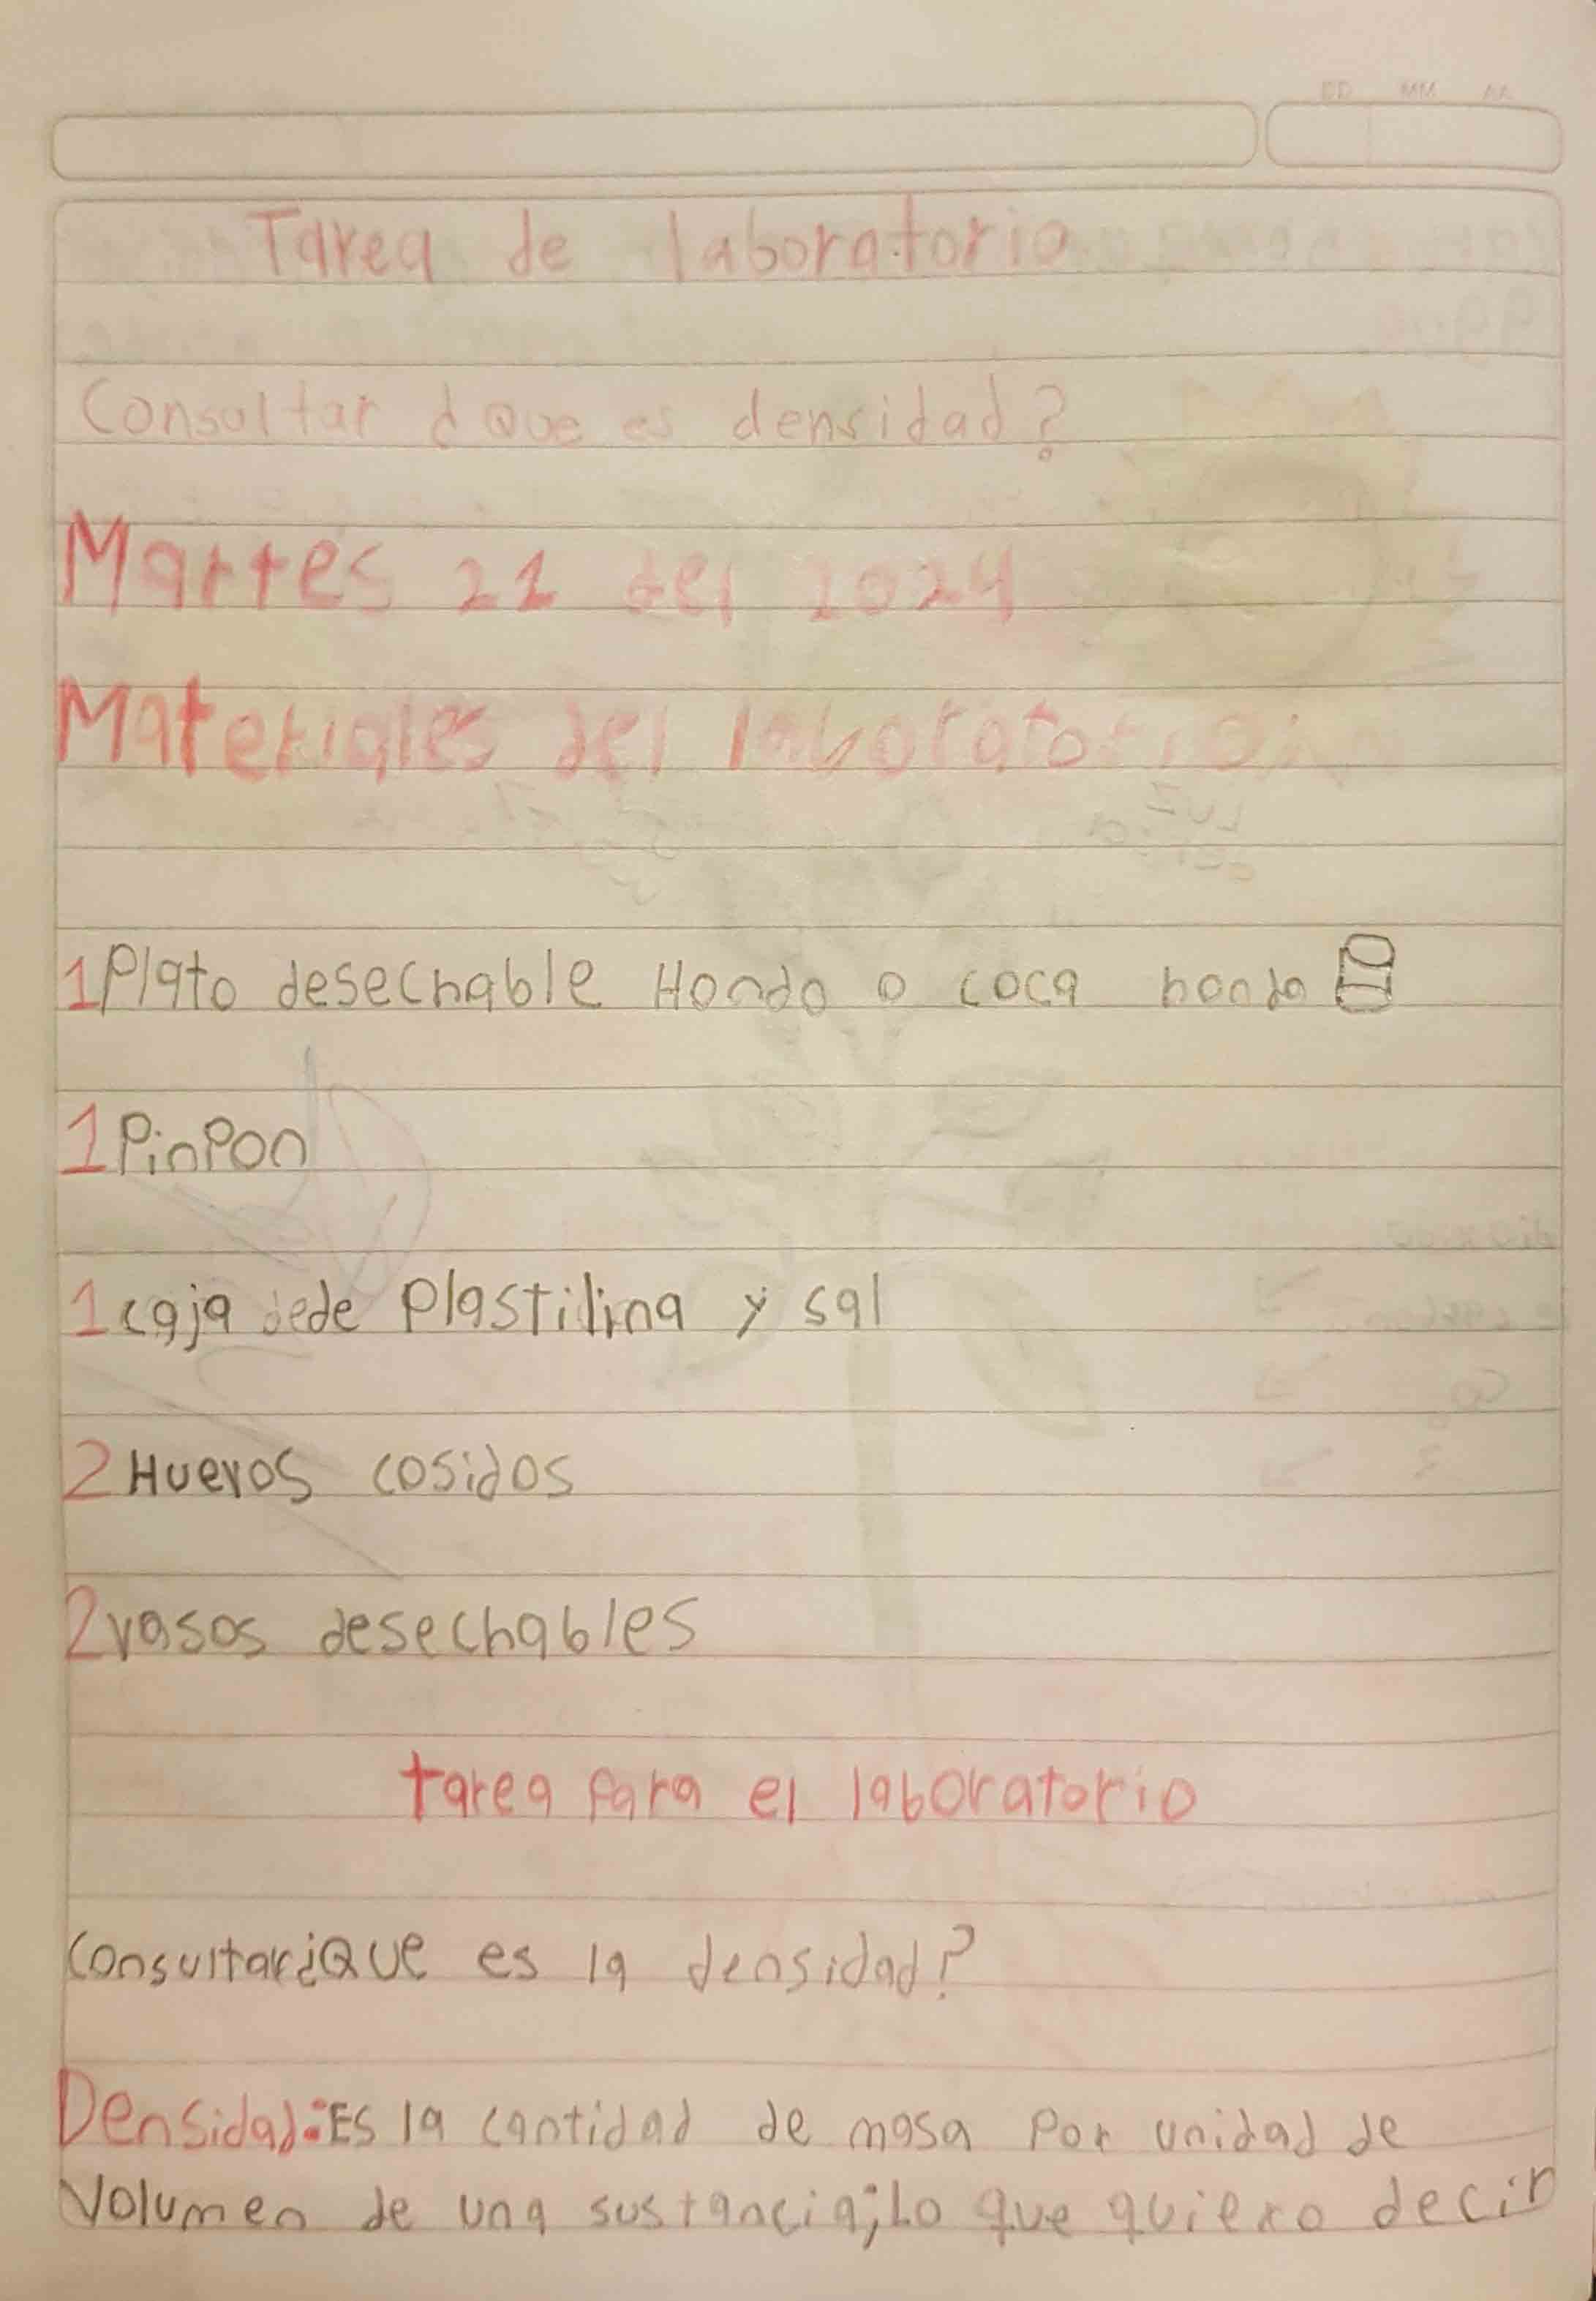 DD MM AA
Tarea de laboratorio
Consultar ¿Que es densidad?
Martes 21 del 2024
Materiales del laboratorio
1 Plato desechable Hondo o coca honda
1 PinPon
1 caja dede Plastilina y sal
2 Huevos cosidos
2 vasos desechables
tarea para el laboratorio
Consultar ¿Que es la densidad?
Densidad: Es la cantidad de masa Por unidad de
Volumen de una sustancia; Lo que quiero decir